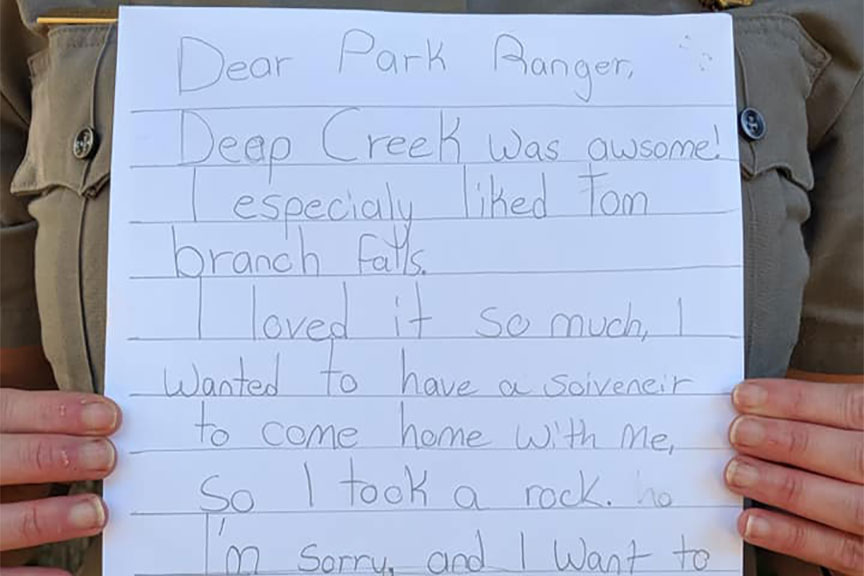 Dear Park Ranger,
Deap Creek was awsome!
I especialy liked Tom
branch falls.
I loved it so much, I
wanted to have a soiveneir
to come home with me,
So I took a rock. ho
I'm sorry, and I want to